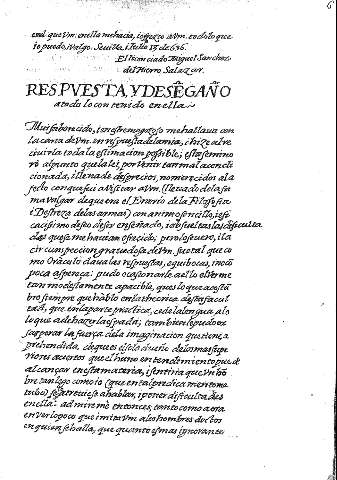 en el que Vm. en ella me hacia, i ofrezco a Vm. en todo lo que
io puedo, i valgo. Sevilla, i Julio 18 de 636.
El licenciado Miguel Sanchez
del Hierro Salazar.
RESPVESTA, Y DESEGAÑO
a todo lo contenido en ella
Mui favorecido, i
la carta de Vm. en respuesta de la mia, i hize al re
civirla toda la estimacion posible; esta se mino
ro al punto que la lei, por venir tan mal acondi
cionada, i llena de desprecios, no merecidos al a
fecto con que fui a visitar a Vm. (llevado de la fa
ma vulgar de que era el Erario de la Filosofia
i Destreza de las armas) con animo sencillo, i efi
cacisimo deseo de ser enseñado, i de sueltas las dificulta
des que se me havian ofrecido; pero lo severo, i la
circunspeccion gravedosa de Vm. fue tal que co
mo Oraculo dava las respuestas, equibocas, i con
poca espereza: pudo ocasionarle a ello el verme
tan modestamente apacible, que es lo que acostu
bro siempre que hablo en la theorica desta facul
tad, que en la parte practica, cede la lengua a lo
lo que a de hazer la espada; tambien le pudo re
forzar la fuerza de la imaginacion que tiene a
prehendida, de que es el solo dueño de los mas supe
riores aciertos que el humano entendimiento puede
alcançar en esta materia, i sentiria que un ho
bre tan lego como io (que en tal predicamento me
tube) se atreviese a hablar, i poner dificultades
en ella: admireme entonces, tanto como aora
en ver lo poco que imita Vm. a los hombres doctos
en quien se halla, que quanto es mas ignorante